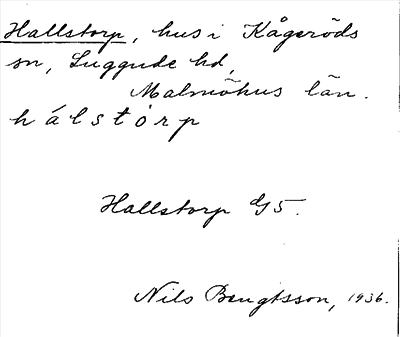 Hallstorp, hus i Kågeröds
sn, Luggude hd,
Malmöhus län.
hálstórp
Hallstorp G5.
Nils Bengtsson, 1936.